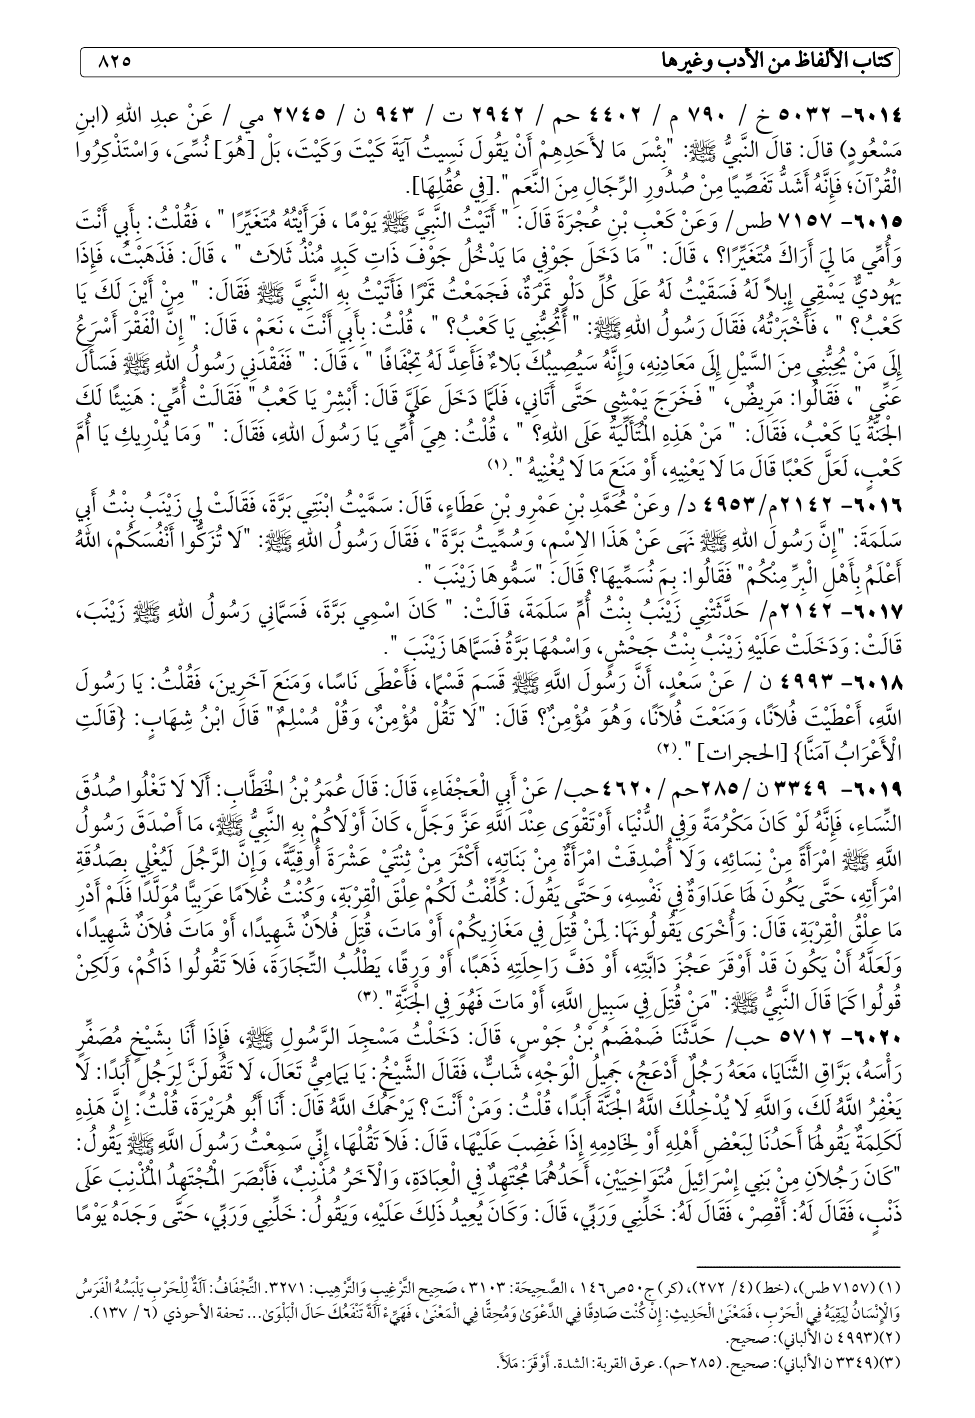 كتاب الألفاظ من الأدب وغيرها ٨٢٥
٦٠١٤- ٥٠٣٢ خ / ٧٩٠ م / ٤٤٠٢ حم / ٢٩٤٢ ت / ٩٤٣ ن / ٢٧٤٥ مي / عَنْ عبدِ اللهِ (ابنِ
مَسْعُودٍ) قالَ: قالَ النَّبيُّ ﷺ: "بِئْسَ مَا لأَحَدِهِمْ أَنْ يَقُولَ نَسِيتُ آيَةَ كَيْتَ وَكَيْتَ، بَلْ [هُوَ] نُسِّىَ، وَاسْتَذْكِرُوا
الْقُرْآنَ؛ فَإِنَّهُ أَشَدُّ تَفَصِّيًا مِنْ صُدُورِ الرِّجَالِ مِنَ النَّعَمِ".[فِي عُقُلِهَا].
٦٠١٥- ٧١٥٧ طس/ وَعَنْ كَعْبِ بْنِ عُجْرَةَ قَالَ: " أَتَيْتُ النَّبِيَّ ﷺ يَوْمًا ، فَرَأَيْتُهُ مُتَغَيِّرًا " ، فَقُلْتُ: بِأَبِي أَنْتَ
وَأُمِّي مَا لِيَ أَرَاكَ مُتَغَيِّرًا؟ ، قَالَ: " مَا دَخَلَ جَوْفِي مَا يَدْخُلُ جَوْفَ ذَاتِ كَبِدٍ مُنْذُ ثَلَاث " ، قَالَ: فَذَهَبْتُ، فَإِذَا
يَهُودِيٌّ يَسْقِي إِبِلاً لَهُ فَسَقَيْتُ لَهُ عَلَى كُلِّ دَلْوٍ تَمْرَةٌ، فَجَمَعْتُ تَمْرًا فَأَتَيْتُ بِهِ النَّبِيَّ ﷺ فَقَالَ: " مِنْ أَيْنَ لَكَ يَا
كَعْبُ؟ " ، فَأَخْبَرْتُهُ، فَقَالَ رَسُولُ اللهِ ﷺ: " أَتُحِبُّنِي يَا كَعْبُ؟ " ، قُلْتُ: بِأَبِي أَنْتَ ، نَعَمْ ، قَالَ: " إِنَّ الْفَقْرَ أَسْرَعُ
إِلَى مَنْ يُحِبُّنِي مِنَ السَّيْلِ إِلَى مَعَادِنِهِ، وَإِنَّهُ سَيُصِيبُكَ بَلَاءٌ فَأَعِدَّ لَهُ تِجْفَافًا " ، قَالَ: " فَفَقْدَنِي رَسُولُ اللهِ ﷺ فَسَأَلَ
عَنِّي "، فَقَالُوا: مَرِيضٌ، " فَخَرَجَ يَمْشِي حَتَّى أَتَانِي، فَلَمَّا دَخَلَ عَلَيَّ قَالَ: أَبْشِرْ يَا كَعْبُ" فَقَالَتْ أُمِّي: هَنِيئًا لَكَ
الْجَنَّةُ يَا كَعْبُ، فَقَالَ: " مَنْ هَذِهِ الْمُتَأَلِّيَةُ عَلَى اللهِ؟ " ، قُلْتُ: هِيَ أُمِّي يَا رَسُولَ اللهِ، فَقَالَ: " وَمَا يُدْرِيكِ يَا أُمَّ
كَعْبٍ، لَعَلَّ كَعْبًا قَالَ مَا لَا يَعْنِيهِ، أَوْ مَنَعَ مَا لَا يُغْنِيهُ ".(١)
٦٠١٦- ٢١٤٢م/ ٤٩٥٣ د/ وعَنْ مُحَمَّدِ بْنِ عَمْرِو بْنِ عَطَاءٍ، قَالَ: سَمَّيْتُ ابْنَتِي بَرَّةَ، فَقَالَتْ لِي زَيْنَبُ بِنْتُ أَبِي
سَلَمَةَ: "إِنَّ رَسُولَ اللهِ ﷺ نَهَى عَنْ هَذَا الِاسْمِ، وَسُمِّيتُ بَرَّةَ"، فَقَالَ رَسُولُ اللهِ ﷺ: "لَا تُزَكُّوا أَنْفُسَكُمْ، اللهُ
أَعْلَمُ بِأَهْلِ الْبِرِّ مِنْكُمْ" فَقَالُوا: بِمَ نُسَمِّيهَا؟ قَالَ: "سَمُّوهَا زَيْنَبَ".
٦٠١٧- ٢١٤٢م/ حَدَّثَتْنِي زَيْنَبُ بِنْتُ أُمِّ سَلَمَةَ، قَالَتْ: " كَانَ اسْمِي بَرَّةَ، فَسَمَّانِي رَسُولُ اللهِ ﷺ زَيْنَبَ،
قَالَتْ: وَدَخَلَتْ عَلَيْهِ زَيْنَبُ بِنْتُ جَحْشٍ، وَاسْمُهَا بَرَّةُ فَسَمَّاهَا زَيْنَبَ ".
٦٠١٨- ٤٩٩٣ ن / عَنْ سَعْدٍ، أَنَّ رَسُولَ اللَّهِ ﷺ قَسَمَ قَسْمًا، فَأَعْطَى نَاسًا، وَمَنَعَ آخَرِينَ، فَقُلْتُ: يَا رَسُولَ
اللَّهِ، أَعْطَيْتَ فُلاَنًا، وَمَنَعْتَ فُلاَنًا، وَهُوَ مُؤْمِنٌ؟ قَالَ: "لَا تَقُلْ مُؤْمِنٌ، وَقُلْ مُسْلِمٌ" قَالَ ابْنُ شِهَابٍ: {قَالَتِ
الْأَعْرَابُ آمَنَّا} [الحجرات] ".(٢)
٦٠١٩- ٣٣٤٩ ن /٢٨٥حم /٤٦٢٠حب/ عَنْ أَبِي الْعَجْفَاءِ، قَالَ: قَالَ عُمَرُ بْنُ الْخَطَّابِ: أَلَا لَا تَغْلُوا صُدُقَ
النِّسَاءِ، فَإِنَّهُ لَوْ كَانَ مَكْرُمَةً وَفِي الدُّنْيَا، أَوْتَقْوَى عِنْدَ اللَّهِ عَزَّ وَجَلَّ، كَانَ أَوْلَاكُمْ بِهِ النَّبِيُّ ﷺ، مَا أَصْدَقَ رَسُولُ
اللَّهِ ﷺ امْرَأَةً مِنْ نِسَائِهِ، وَلَا أُصْدِقَتْ امْرَأَةٌ مِنْ بَنَاتِهِ، أَكْثَرَ مِنْ ثِنْتَيْ عَشْرَةَ أُوقِيَّةً، وَإِنَّ الرَّجُلَ لَيُغْلِي بِصَدُقَةِ
امْرَأَتِهِ، حَتَّى يَكُونَ لَهَا عَدَاوَةٌ فِي نَفْسِهِ، وَحَتَّى يَقُولَ: كُلِّفْتُ لَكُمْ عِلْقَ الْقِرْبَةِ، وَكُنْتُ غُلَامًا عَرَبِيًّا مُوَلَّدًا فَلَمْ أَدْرِ
مَا عِلْقُ الْقِرْبَةِ، قَالَ: وَأُخْرَى يَقُولُونَهَا: لِمَنْ قُتِلَ فِي مَغَازِيكُمْ، أَوْ مَاتَ، قُتِلَ فُلاَنٌ شَهِيدًا، أَوْ مَاتَ فُلاَنٌ شَهِيدًا،
وَلَعَلَّهُ أَنْ يَكُونَ قَدْ أَوْقَرَ عَجُزَ دَابَّتِهِ، أَوْ دَفَّ رَاحِلَتِهِ ذَهَبًا، أَوْ وَرِقًا، يَطْلُبُ التِّجَارَةَ، فَلاَ تَقُولُوا ذَاكُمْ، وَلَكِنْ
قُولُوا كَمَا قَالَ النَّبِيُّ ﷺ: "مَنْ قُتِلَ فِي سَبِيلِ اللَّهِ، أَوْ مَاتَ فَهُوَ فِي الْجَنَّةِ".(٣)
٦٠٢٠- ٥٧١٢ حب/ حَدَّثَنَا ضَمْضَمُ بْنُ جَوْسٍ، قَالَ: دَخَلْتُ مَسْجِدَ الرَّسُولِ ﷺ، فَإِذَا أَنَا بِشَيْخٍ مُصَفِّرٍ
رَأْسَهُ، بَرَّاقِ الثَّنَايَا، مَعَهُ رَجُلٌ أَدْعَجُ، جَمِيلُ الْوَجْهِ، شَابٌّ، فَقَالَ الشَّيْخُ: يَا يَمَامِيُّ تَعَالَ، لَا تَقُولَنَّ لِرَجُلٍ أَبَدًا: لَا
يَغْفِرُ اللَّهُ لَكَ، وَاللَّهِ لَا يُدْخِلُكَ اللَّهُ الْجَنَّةَ أَبَدًا، قُلْتُ: وَمَنْ أَنْتَ؟ يَرْحَمُكَ اللَّهُ قَالَ: أَنَا أَبُو هُرَيْرَةَ، قُلْتُ: إِنَّ هَذِهِ
لَكَلِمَةٌ يَقُولُهَا أَحَدُنَا لِبَعْضِ أَهْلِهِ أَوْ لِخَادِمِهِ إِذَا غَضِبَ عَلَيْهَا، قَالَ: فَلاَ تَقُلْهَا، إِنِّي سَمِعْتُ رَسُولَ اللَّهِ ﷺ يَقُولُ:
"كَانَ رَجُلاَنِ مِنْ بَنِي إِسْرَائِيلَ مُتَوَاخِيَيْنِ، أَحَدُهُمَا مُجْتَهِدٌ فِي الْعِبَادَةِ، وَالْآخَرُ مُذْنِبٌ، فَأَبْصَرَ الْمُجْتَهِدُ الْمُذْنِبَ عَلَى
ذَنْبٍ، فَقَالَ لَهُ: أَقْصِرْ، فَقَالَ لَهُ: خَلِّنِي وَرَبِّي، قَالَ: وَكَانَ يُعِيدُ ذَلِكَ عَلَيْهِ، وَيَقُولُ: خَلِّنِي وَرَبِّي، حَتَّى وَجَدَهُ يَوْمًا
(١) (٧١٥٧ طس)، (خط) (٤/ ٢٧٢)، (كر) ج٥٠ص١٤٦ ، الصَّحِيحَة: ٣١٠٣ ، صَحِيح التَّرْغِيبِ وَالتَّرْهِيب: ٣٢٧١. التِّجْفَافُ: آلَةٌ لِلْحَرْبِ يَلْبَسُهُ الْفَرَسُ
وَالْإِنْسَانُ لِيَقِيَهُ فِي الْحَرْبِ ، فَمَعْنَىٰ الْحَدِيثِ: إِنْ كُنْت صَادِقًا فِي الدَّعْوَىٰ وَمُحِقًّا فِي الْمَعْنَىٰ ، فَهَيِّءْ آلَةً تَنْفَعُكَ حَالَ الْبَلْوَىٰ... تحفة الأحوذي (٦ / ١٣٧).
(٢)(٤٩٩٣ ن الألباني): صحيح.
(٣)(٣٣٤٩ ن الألباني): صحيح. (٢٨٥حم). عرق القربة: الشدة. أَوْقَرَ: مَلَأَ.